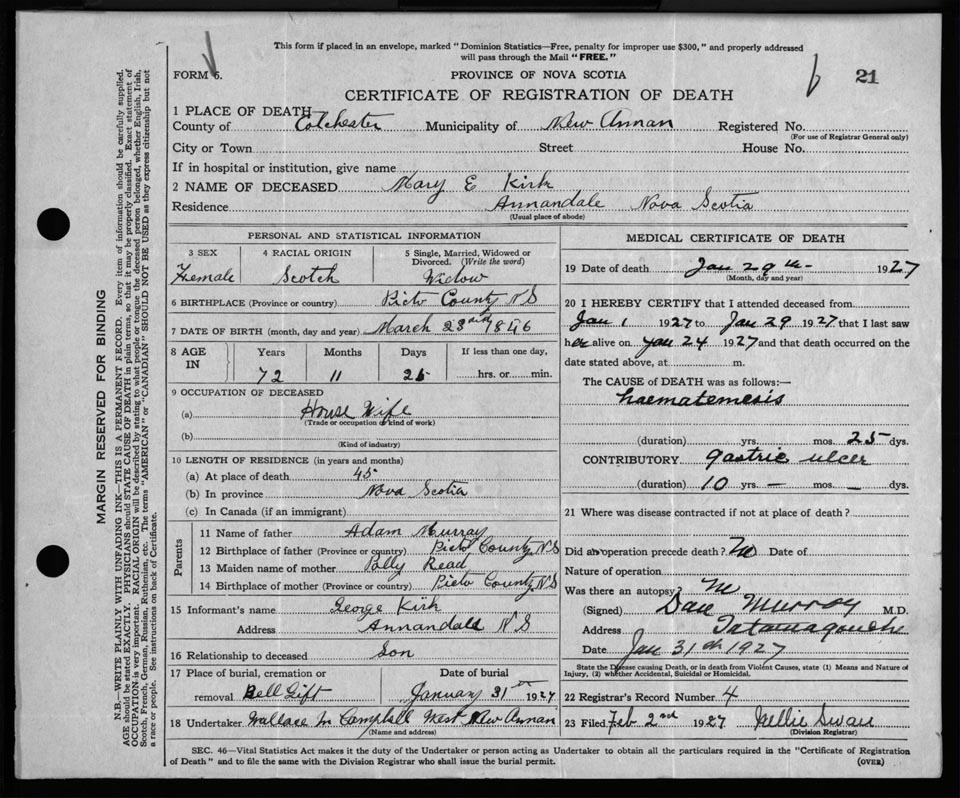 This form if placed in an envelope, marked "Dominion Statistics—Free, penalty for improper use $300," and properly addressed
will pass through the Mail "FREE."
FORM 6.
PROVINCE OF NOVA SCOTIA
21
CERTIFICATE OF REGISTRATION OF DEATH
1 PLACE OF DEATH
County of Colchester Municipality of New Annan Registered No.
(For use of Registrar General only)
City or Town Street House No.
If in hospital or institution, give name
2 NAME OF DECEASED Mary E Kirk
Residence Annandale Nova Scotia
(Usual place of abode)
PERSONAL AND STATISTICAL INFORMATION
3 SEX 4 RACIAL ORIGIN 5 Single, Married, Widowed or Divorced. (Write the word)
Female Scotch Widow
6 BIRTHPLACE (Province or country) Picto County NS
7 DATE OF BIRTH (month, day and year) March 23rd 1846
8 AGE IN Years Months Days If less than one day,
72 11 25 hrs. or min.
9 OCCUPATION OF DECEASED
(a) House Wife
(Trade or occupation or kind of work)
(b)
(Kind of industry)
10 LENGTH OF RESIDENCE (in years and months)
(a) At place of death 45
(b) In province Nova Scotia
(c) In Canada (if an immigrant)
Parents
11 Name of father Adam Murray
12 Birthplace of father (Province or country) Picto County NS
13 Maiden name of mother Polly Read
14 Birthplace of mother (Province or country) Picto County NS
15 Informant's name George Kirk
Address Annandale NS
16 Relationship to deceased Son
17 Place of burial, cremation or removal Bell Gift Date of burial January 31st 1927
18 Undertaker Wallace M Campbell West New Annan
(Name and address)
MEDICAL CERTIFICATE OF DEATH
19 Date of death Jan 29th 1927
(Month, day and year)
20 I HEREBY CERTIFY that I attended deceased from
Jan 1 1927 to Jan 29 1927 that I last saw
her alive on Jan 24 1927 and that death occurred on the
date stated above, at m.
The CAUSE of DEATH was as follows:—
haematemesis
(duration) yrs. mos. 25 dys.
CONTRIBUTORY gastric ulcer
(duration) 10 yrs. — mos. — dys.
21 Where was disease contracted if not at place of death?
Did an operation precede death? No Date of
Nature of operation
Was there an autopsy? No
(Signed) Dan Murray M.D.
Address Tatamagouche
Date Jan 31st 1927
State the Disease causing Death, or in death from Violent Causes, state (1) Means and Nature of
Injury, (2) whether Accidental, Suicidal or Homicidal.
22 Registrar's Record Number 4
23 Filed Feb 2nd 1927 Nellie Swan
(Division Registrar)
SEC. 46—Vital Statistics Act makes it the duty of the Undertaker or person acting as Undertaker to obtain all the particulars required in the "Certificate of Registration
of Death" and to file the same with the Division Registrar who shall issue the burial permit.
(OVER)
MARGIN RESERVED FOR BINDING
N.B.—WRITE PLAINLY WITH UNFADING INK—THIS IS A PERMANENT RECORD. Every item of information should be carefully supplied.
AGE should be stated EXACTLY. PHYSICIANS should STATE CAUSE OF DEATH in plain terms, so that it may be properly classified. Exact statement of
OCCUPATION is very important. RACIAL ORIGIN will be described by stating to what people or tongue the deceased person belonged, whether English, Irish,
Scotch, French, German, Russian, Ruthenian, etc. The terms "AMERICAN" or "CANADIAN" SHOULD NOT BE USED as they express citizenship but not
a race or people. See instructions on back of Certificate.